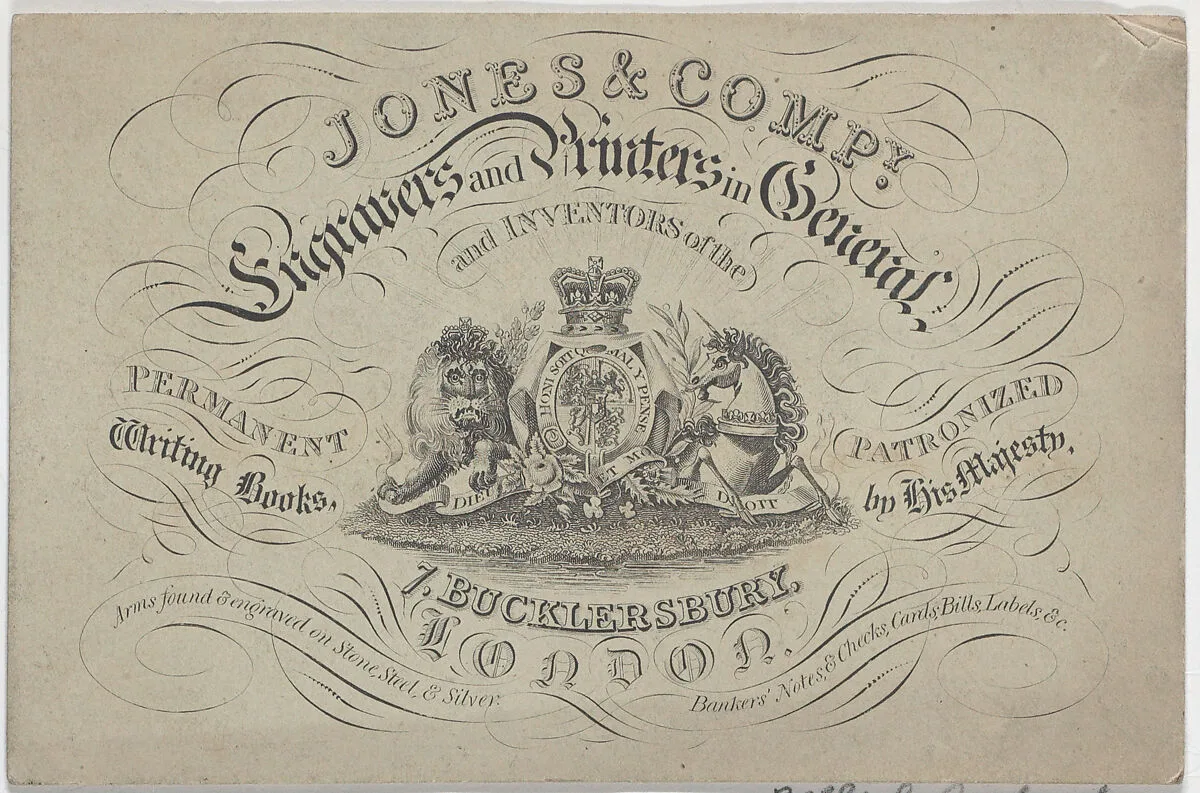 JONES & COMPY.
Engravers and Printers in General,
and INVENTORS of the
HONI SOIT Q MAL Y PENSE
DIEU ET MO DROIT
PERMANENT
Writing Books,
PATRONIZED
by His Majesty.
7, BUCKLERSBURY,
LONDON.
Arms found & engraved on Stone, Steel, & Silver.
Bankers' Notes, & Checks, Cards, Bills, Labels, &c.